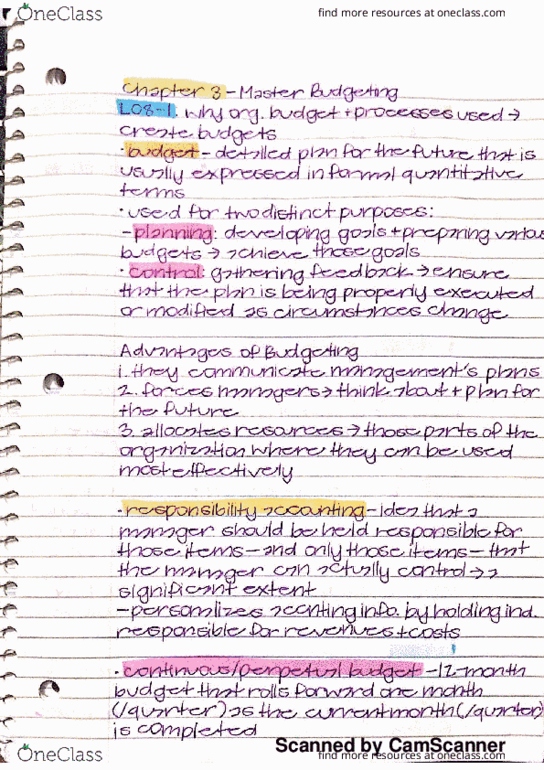 OneClass
find more resources at oneclass.com
Chapter 8 - Master Budgeting
LO8-1. why org. budget + processes used →
create budgets
· budget - detailed plan for the future that is
usually expressed in formal quantitative
terms
· used for two distinct purposes:
- planning: developing goals + preparing various
budgets → achieve those goals
· control: gathering feedback → ensure
that the plan is being properly executed
or modified as circumstances change
Advantages of Budgeting
1. they communicate management's plans
2. forces managers → think about + plan for
the future
3. allocates resources → those parts of the
organization where they can be used
most effectively
· responsibility accounting - idea that a
manager should be held responsible for
those items - and only those items - that
the manager can actually control → a
significant extent
- personalizes accnting info. by holding ind.
responsible for revenues + costs
· continuous/perpetual budget - 12-month
budget that rolls forward one month
(/quarter) as the current month (/quarter)
is completed
Scanned by CamScanner
OneClass
find more resources at oneclass.com